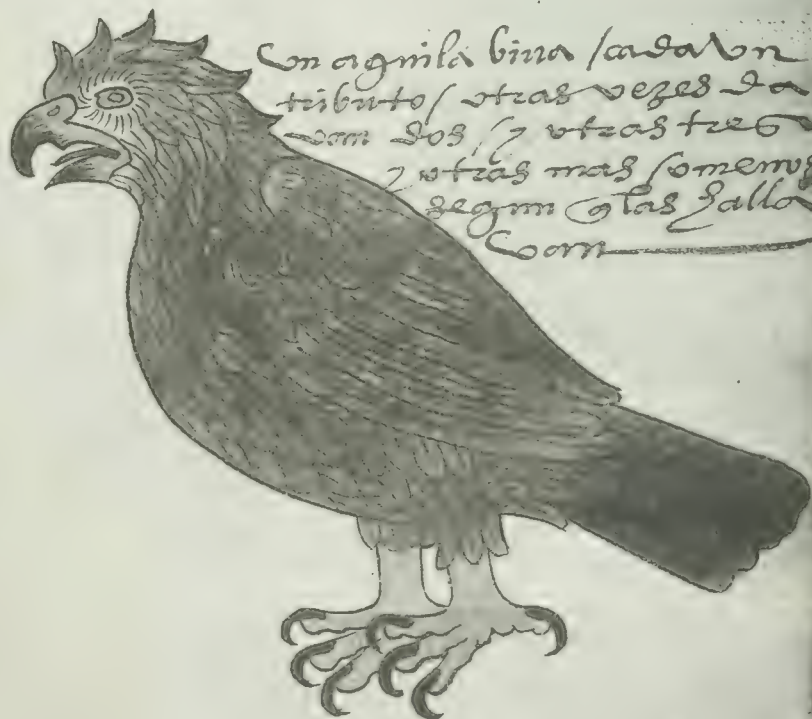 Un aguila biua / cada Un
tributo / otras vezes da
van dos / y otras tres
y otras mas / o menos
segun q̃ las halla
van